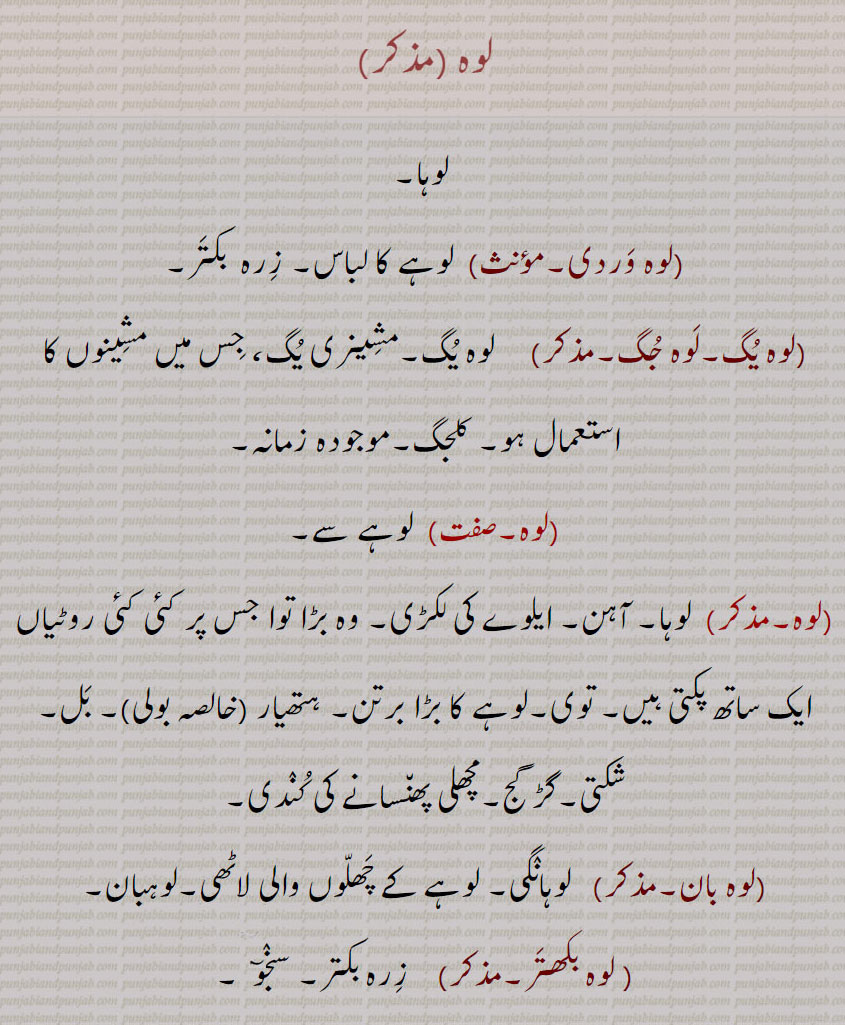 لوہ (مذکر)
لوہا۔
(لوہ وَردی۔مؤنث) لوہے کا لباس۔ زِرہ بکتَر۔
(لوہ یُگ۔لَوہ جُگ۔مذکر) لوہ یُگ۔مشِینری یُگ، جِس میں مشِینوں کا
استعمال ہو۔ کلجگ۔موجودہ زمانہ۔
(لوہ۔صفت) لوہے سے۔
(لوہ۔مذکر) لوہا۔ آہن۔ ایلوے کی لکڑی۔ وہ بڑا توا جس پر کئی کئی روٹیاں
ایک ساتھ پکتی ہیں۔ توی۔لوہے کا بڑا برتن۔ ہتھیار (خالصہ بولی)۔ بَل۔
شکتی۔گڑگج۔مچھلی پھنّسانے کی کُنْدی۔
(لوہ بان۔مذکر) لوہانْگی۔ لوہے کے چَھلّوں والی لاٹھی۔لوہبان۔
(لوہ بکھتَر۔مذکر) زِرہ بکتر۔ سنجْوَ۔
punjabiandpunjab.com